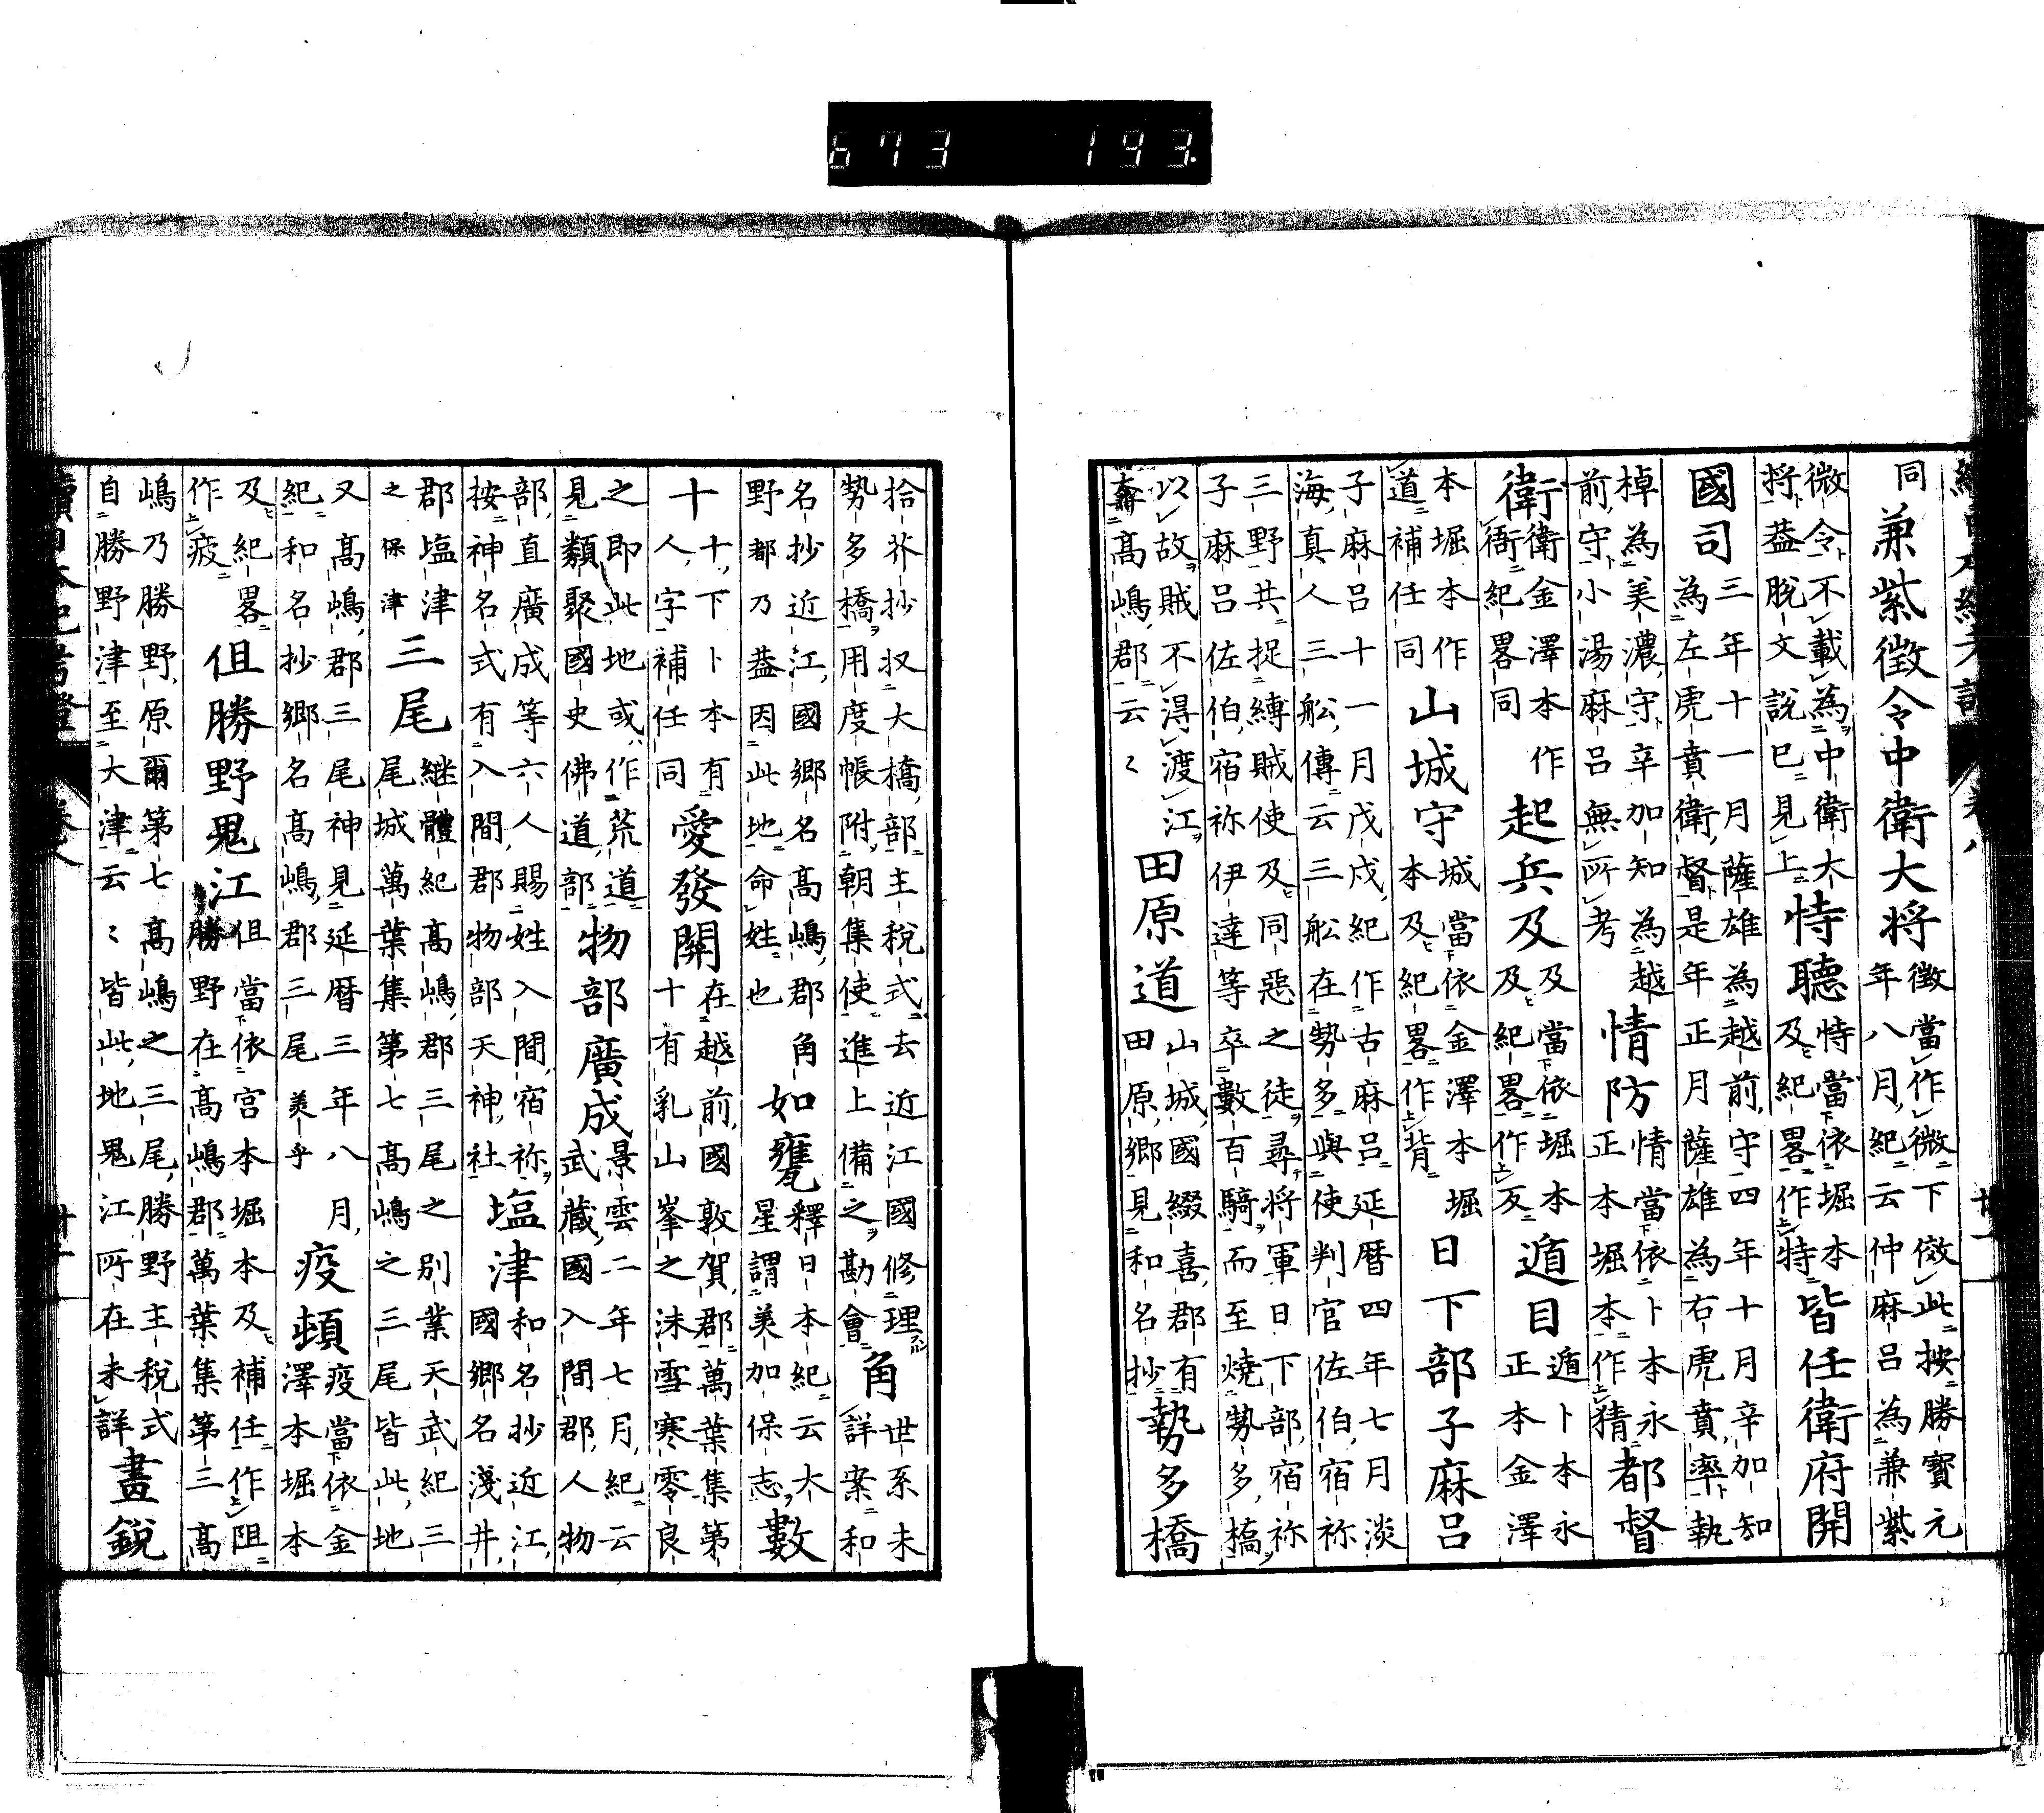 673 193.
同 兼紫微令中衛大将 徴當作微下傚此按勝寶元年八月紀云仲麻呂為兼紫
微令不載為中衛大将葢脱文説已見上 恃聽 恃當依堀本及紀畧作特 皆任衛府開
國司 三年十一月薩雄為越前守四年十月辛加知為左虎賁衛督是年正月薩雄為右虎賁率執
棹為美濃守辛加知為越前守小湯麻呂無所考 情防 情當依卜本永正本堀本作猜 都督
衛 衛金澤本作衙紀畧同 起兵及 及當依堀本及紀畧作反 遁目 遁卜本永正本金澤
本堀本作道補任同 山城守 城當依金澤本堀本及紀畧作背 日下部子麻呂
子麻呂十一月戊戌紀作古麻呂延暦四年七月淡海真人三舩傳云三舩在勢多與使判官佐伯宿祢
三野共捉縛賊使及同惡之徒尋将軍日下部宿祢子麻呂佐伯宿祢伊達等卒數百騎而至燒勢多橋
以故賊不得渡江奔髙嶋郡云〻 田原道 山城國綴喜郡有田原郷見和名抄 勢多橋
拾芥抄収大橋部主税式去近江國修理勢多橋用度帳附朝集使進上備之勘會 角 世系未詳案和
名抄近江國郷名髙嶋郡角野都乃葢因此地命姓也 如甕 釋日本紀云大星謂美加保志 數
十 十下卜本有人字補任同 愛發關 在越前國敦賀郡萬葉集第十有乳山峯之沫雪寒零良
之即此地或作荒道見類聚國史佛道部 物部廣成 景雲二年七月紀云武藏國入間郡人物
部直廣成等六人賜姓入間宿祢按神名式有入間郡物部天神社 塩津 和名抄近江國郷名淺井
郡塩津之保津 三尾 継體紀髙嶋郡三尾之別業天武紀三尾城萬葉集第七髙嶋之三尾皆此地
又髙嶋郡三尾神見延暦三年八月紀和名抄郷名髙嶋郡三尾美乎 疫頓 疫當依金澤本堀本
及紀畧作疲 伹勝野鬼江 伹當依宮本堀本及補任作阻勝野在髙嶋郡萬葉集第三髙
嶋乃勝野原爾第七髙嶋之三尾勝野主税式自勝野津至大津云〻皆此地鬼江所在未詳 晝鋭